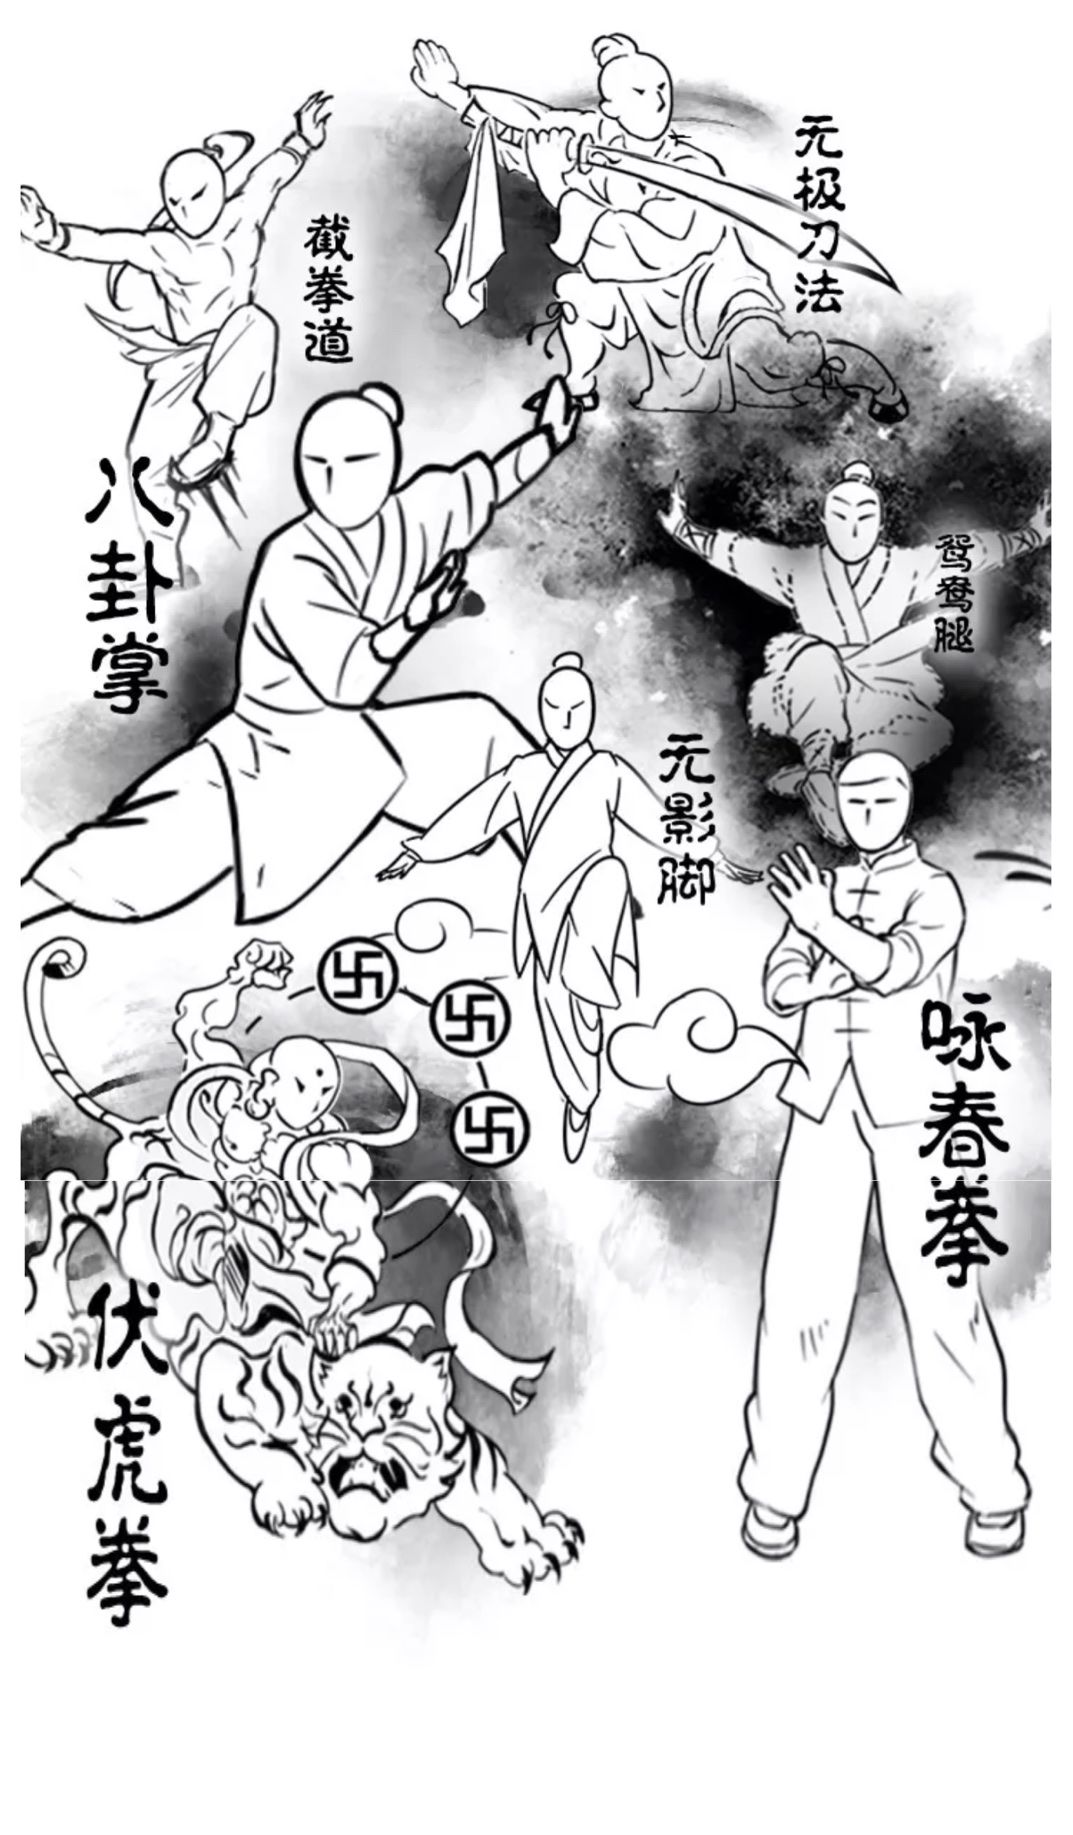 无极刀法
截拳道
八卦掌
鸳鸯腿
无影脚
咏春拳
伏虎拳
卐
卐
卐